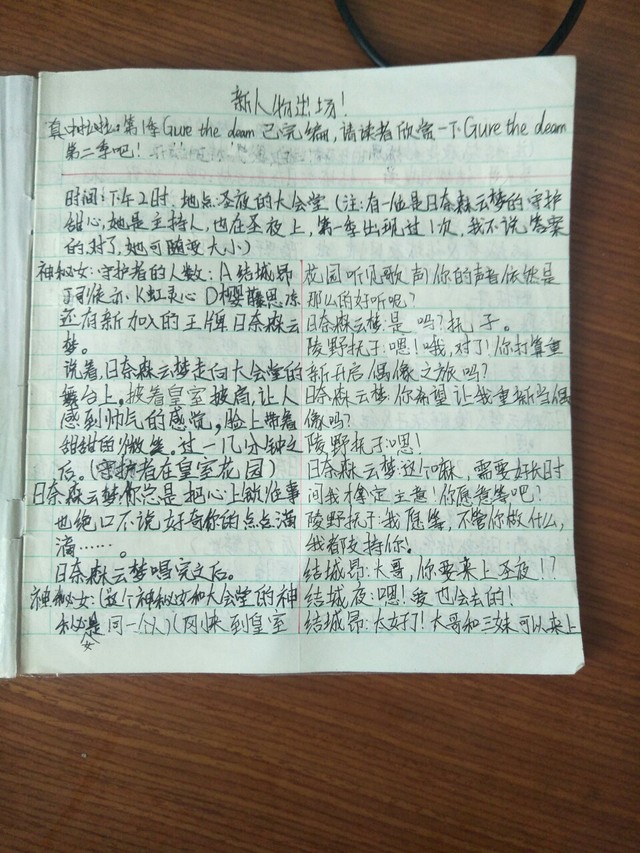 新人物出场！
真咔啦啦：第1季Gure the deam 已完编，请读者欣赏一下Gure the deam
第二季吧！
时间：下午2时，地点圣夜的大会堂（注：有一位是日奈森云梦的守护
甜心，她是主持人，也在圣夜上，第一季出现过1次，我不说答案
的，对了，她可随变大小）
神秘女：守护者的人数：A结城昂
K虹灵心 D樱藤恩冻
还有新加入的王牌日奈森云
梦。
说着，日奈森云梦走向大会堂的
舞台上，披着皇室披肩，让人
感到帅气的感觉，脸上带着
甜甜的微笑。过一几分钟之
后。（守护者在皇室花园）
日奈森云梦：你总是把心上锁往事
也绝口不说好奇你的点点滴
滴……。
日奈森云梦唱完之后。
神秘女：（这个神秘女和大会堂的神
秘女是同一个人）（刚来到皇室
花园听见歌声）你的声音依然是
那么的好听呢？
日奈森云梦：是吗？抚子。
陵野抚子：嗯！哦，对了！你打算重
新开启偶像之旅吗？
日奈森云梦：你希望让我重新当偶
像吗？
陵野抚子：嗯！
日奈森云梦：这个嘛，需要好长时
间我才拿定主意！你愿意等吧！
陵野抚子：我愿等，不管你做什么，
我都支持你！
结城昂：大哥，你要来上圣夜！？
结城夜：嗯！爱也会去的！
结城昂：太好了！大哥和三妹可以来上